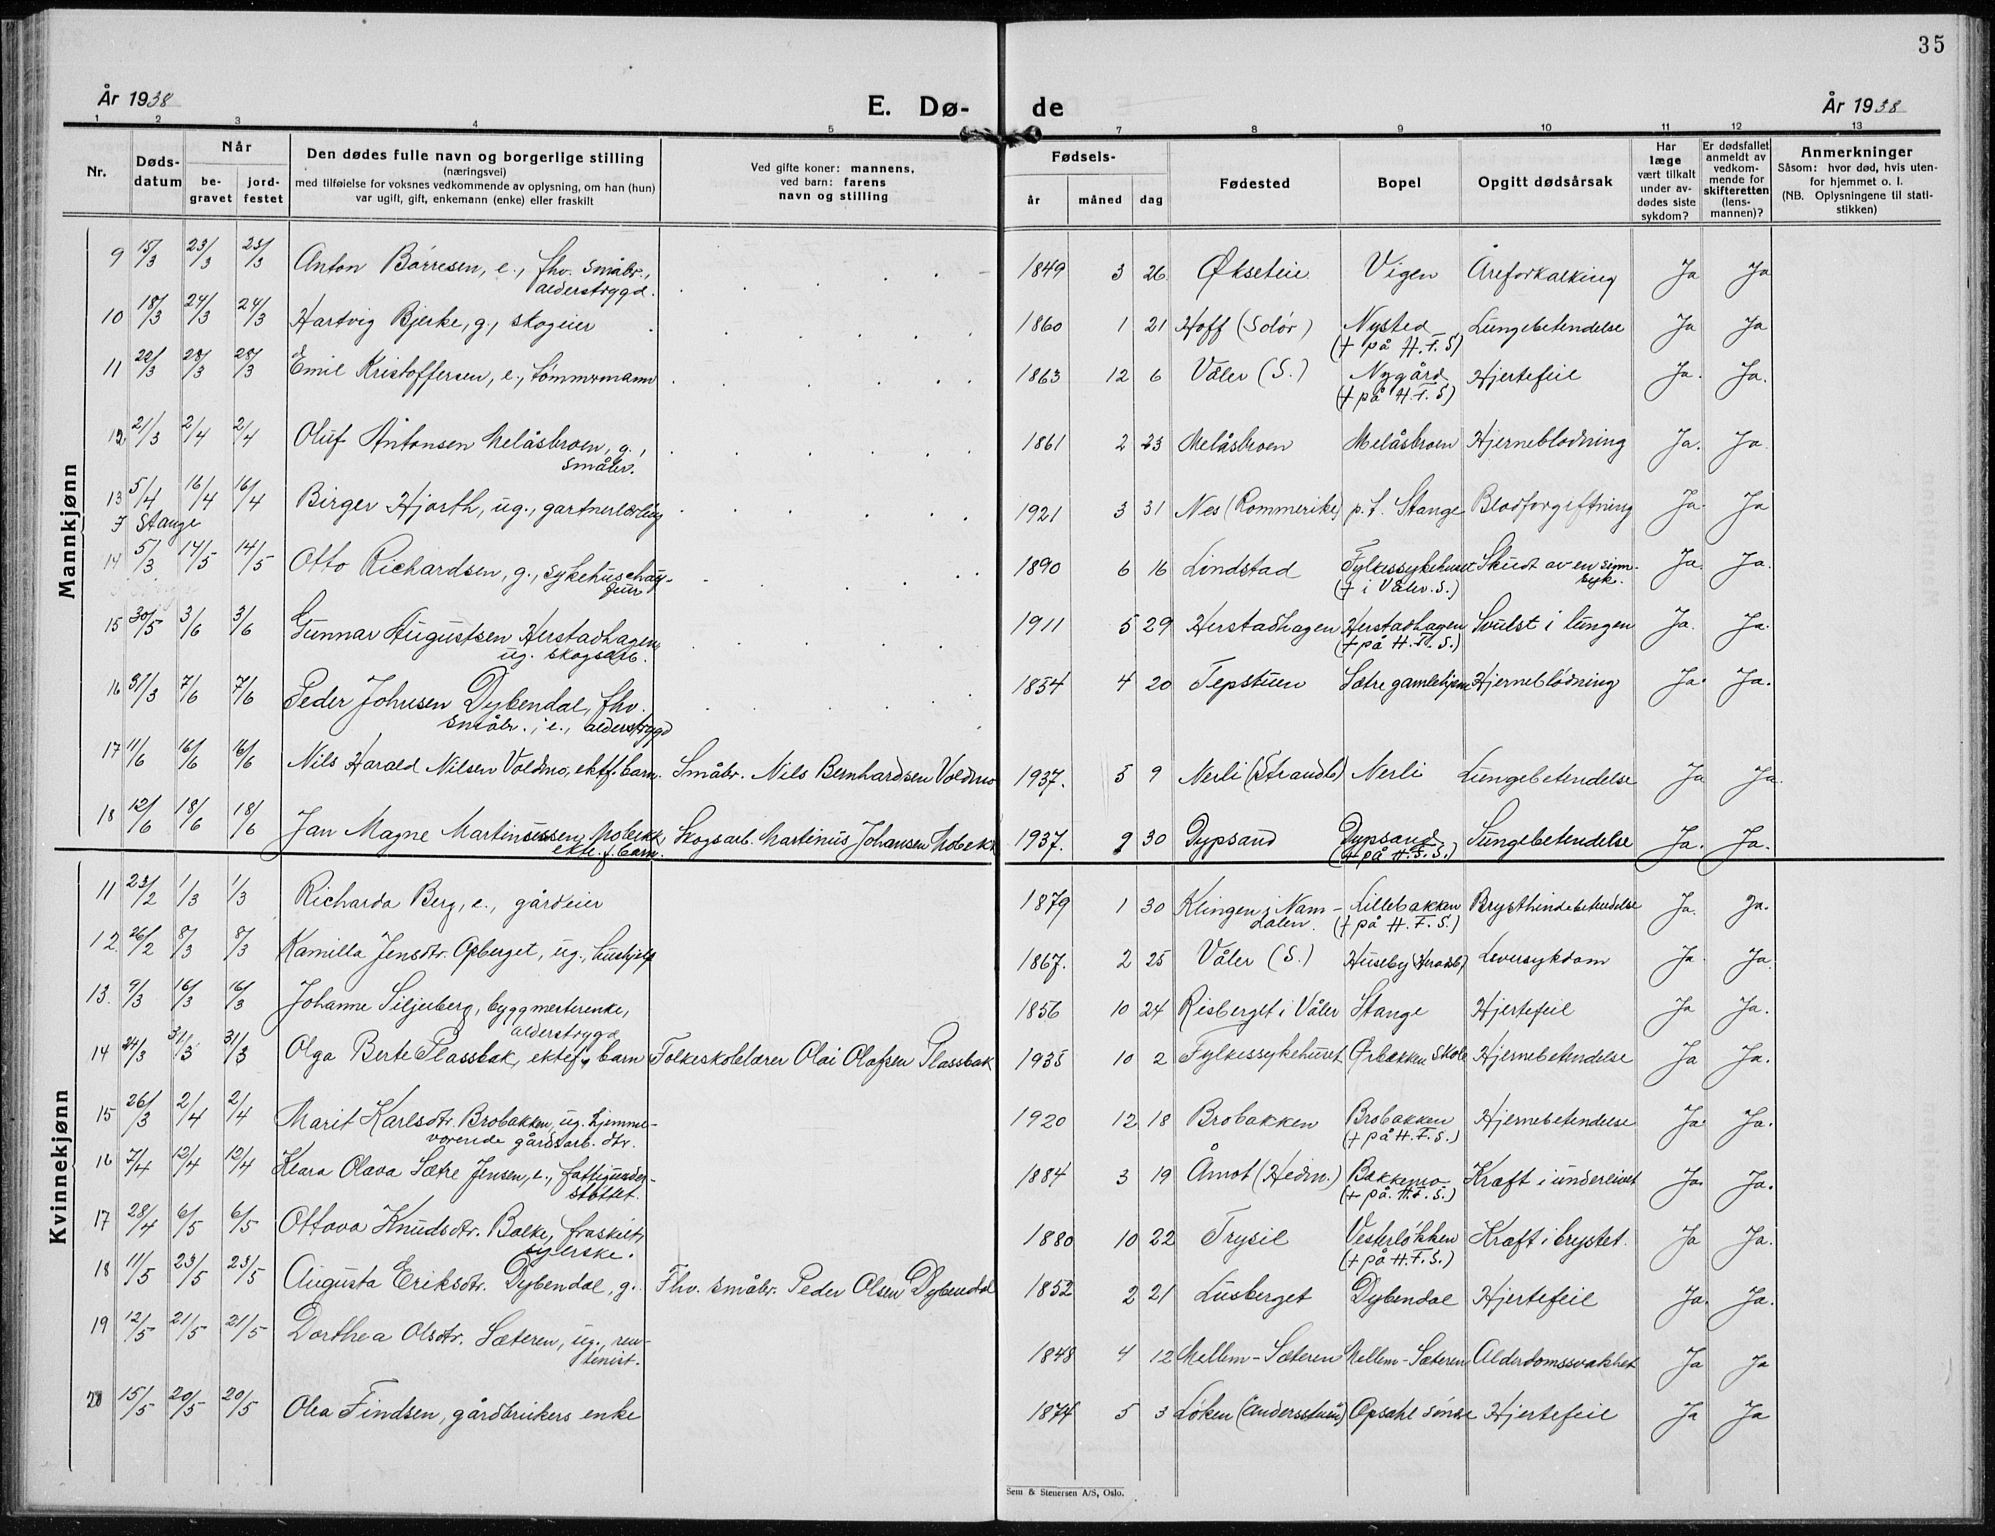 35
År 1938
E. Dø-
de
År 1938
1 2 3 4 5 7 8 9 10 11 12 13
Nr.
Døds-
datum
Når
be-
gravet
jord-
festet
Den dødes fulle navn og borgerlige stilling
(næringsvei)
med tilføielse for voksnes vedkommende av oplysning, om han (hun)
var ugift, gift, enkemann (enke) eller fraskilt
Ved gifte koner: mannens,
ved barn: farens
navn og stilling
Fødsels-
år måned dag
Fødested
Bopel
Opgitt dødsårsak
Har
læge
vært tilkalt
under av-
dødes siste
sykdom?
Er dødsfallet
anmeldt av
vedkom-
mende for
skifteretten
(lens-
mannen)?
Anmerkninger
Såsom: hvor død, hvis uten-
for hjemmet o. l.
(NB. Oplysningene til stati-
stikken)
Mannkjønn
9 15/3 23/3 23/3 Anton Børresen, e., fhv. småbr., 1849 3 26 Økseteie Vigen Åreforkalking Ja Ja
alderstrygd.
10 18/3 24/3 24/3 Hartvig Bjerke, g., skogeier 1860 1 21 Hoff (Solør) Nysted Lungebetendelse Ja Ja
(+ på H.F.S)
11 22/3 28/3 28/3 Emil Kristoffersen, e., tømmermann 1863 12 6 Våler (S.) Nygård Hjertefeil Ja. Ja.
(+ på H.F.S)
12 21/3 2/4 2/4 Oluf Antonsen Melåsbroen, g., 1861 2 23 Melåsbroen Melåsbroen Hjerneblødning Ja. Ja.
småbr.
13 5/4 16/4 16/4 Birger Hjorth, ug., gartnerlærling 1921 3 31 Nes (Rommerike) p.t. Stange Blodforgiftning Ja Ja
I Stange
14 5/3 14/5 14/5 Otto Richardsen, g., sykehuschauf- 1890 6 16 Lindstad Fylkessykehuset Skudt av en sinn- Ja. Ja.
før (+ i Våler. S.) syk.
15 30/5 3/6 3/6 Gunnar Augustsen Herstadhagen, 1911 5 29 Herstadhagen Herstadhagen Svulst i lungen Ja. Ja.
ug. skogsarb. (+ på H.F.S.)
16 31/3 7/6 7/6 Peder Johnsen Dybendal, fhv. 1854 4 20 Tepstuen Sætre gamlehjem Hjerneblødning Ja. Ja.
småbr., e., alderstrygd
17 11/6 16/6 16/6 Nils Harald Nilsen Voldmo, ektf. barn. Småbr. Nils Bernhardsen Voldmo 1937. 5 9 Nerli (Strandb) Nerli Lungebetendelse Ja Ja
18 12/6 18/6 18/6 Jan Magne Martinussen Mobekk, Skogsarb. Martinus Johansen Mobekk 1937. 9 30 Dypsand Dypsand Lungebetendelse Ja. Ja.
ekte. f. barn. (+ på H.F.S.)
Kvinnekjønn
11 23/2 1/3 1/3 Richarda Berg, e., gårdeier 1879 1 30 Klingen i Nam- Lillebakken Brysthindebetendelse Ja. Ja.
dalen. (+ på H.F.S.)
12. 26/2 8/3 8/3 Kamilla Jensdtr. Opberget, ug., hushjelp 1867. 2 25 Våler (S.) Huseby (Heradsb) Leversykdom Ja Ja.
13. 9/3 16/3 16/3 Johanne Siljuberg, byggmesterenke, 1856 10 24 Risberget i Våler Stange Hjertefeil Ja Ja.
alderstrygd
14 24/3 31/3 31/3 Olga Berte Plassbak, ektef. barn Folkeskolelærer Olai Olafsen Plassbak 1935 10 2 Fylkessykehuset Ørbekken skole Hjernebetendelse Ja Ja.
15 26/3 2/4 2/4 Marit Karlsdtr. Brobakken, ug. hjemme- 1920 12 18 Brobakken Brobakken Hjernebetendelse Ja. Ja.
værende gårdsarb. dtr. (+ på H.F.S.)
16 7/4 12/4 12/4 Klara Olava Sætre Jensen, e., fattigunder- 1884 3 19 Åmot (Hedm.) Bakkemo Kræft i underlivet Ja. Ja.
støttet. (+ på H.F.S.)
17 28/4 6/5 6/5 Ottova Knudsdtr. Bolke, fraskilt, 1880 10 22 Trysil Vesterløkken Kræft i brystet. Ja Ja.
syerske. (+ på H.F.S.)
18 11/5 23/5 23/5 Augusta Eriksdtr. Dybendal, g. Fhv. småbr. Peder Olsen Dybendal 1852 2 21 Lusberget Dybendal Hjertefeil Ja. Ja.
19 12/5 21/5 21/5 Dorthea Olsdtr. Sæteren, ug., ren- 1848 4 12 Mellem-Sæteren Mellem-Sæteren Alderdomssvakhet Ja Ja
tenist.
20 15/5 20/5 20/5 Olea Findsen, gårdbrukers enke 1874 5 3 Løken (Andersstuen) Opsahl søndre Hjertefeil Ja Ja
Sem & Stenersen A/S, Oslo.